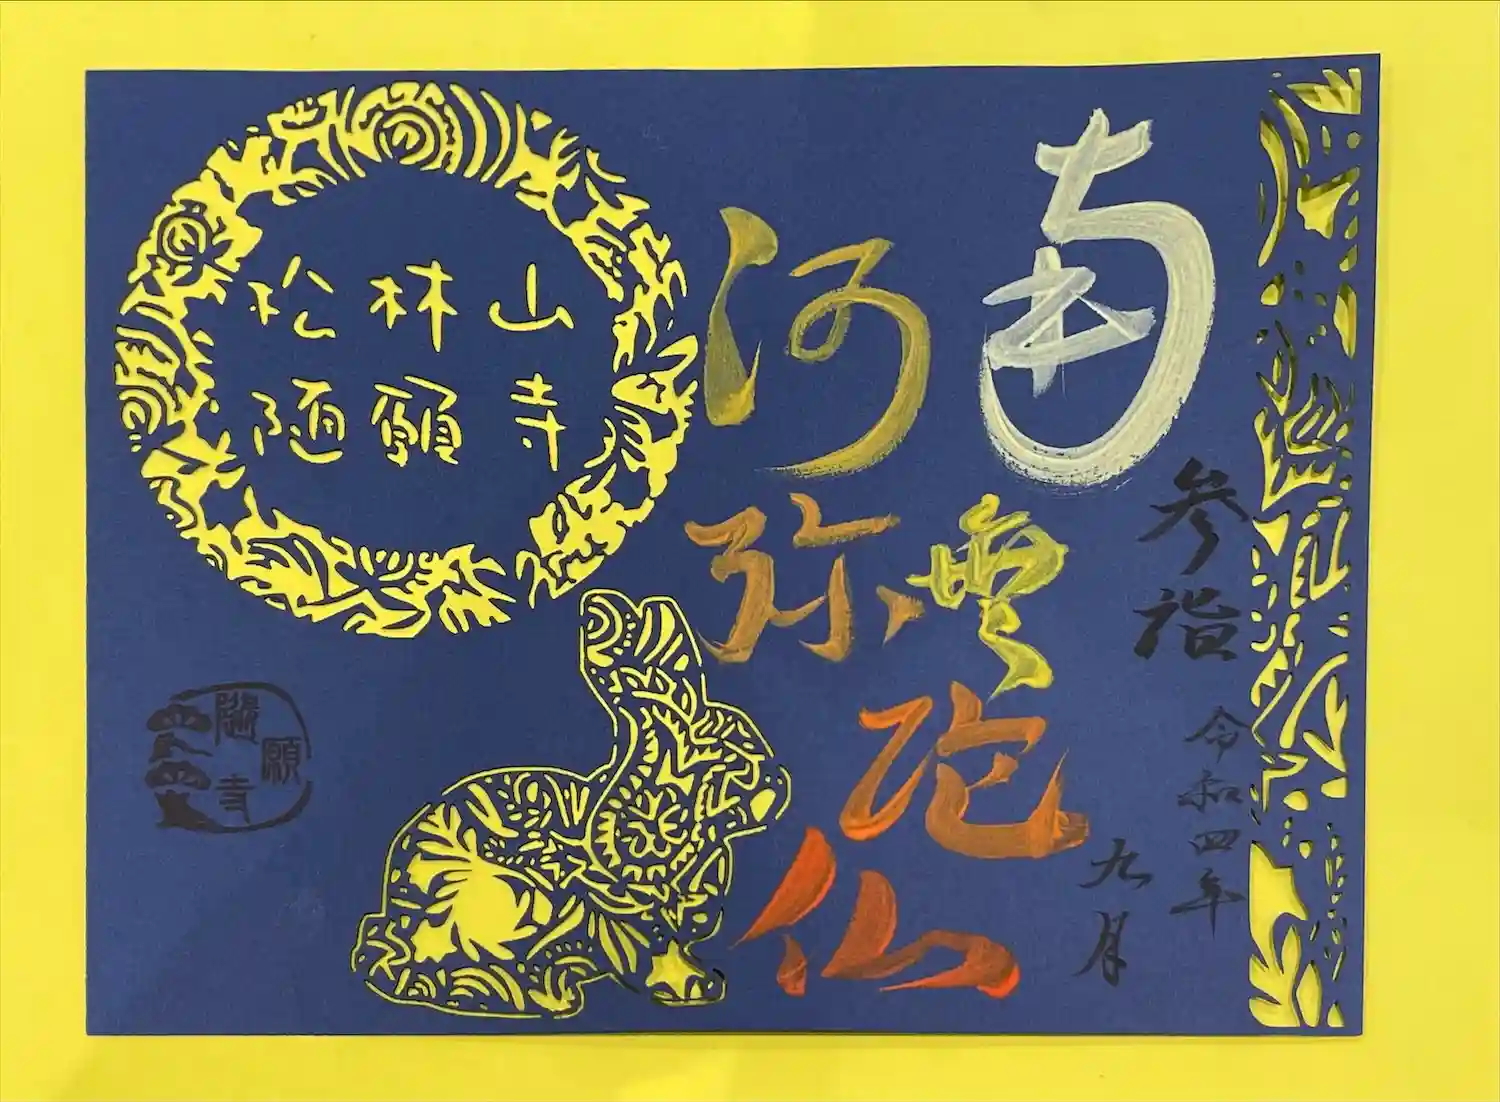 参詣
令和四年
九月
南無
阿弥陀仏
松林山
随願寺
随願寺